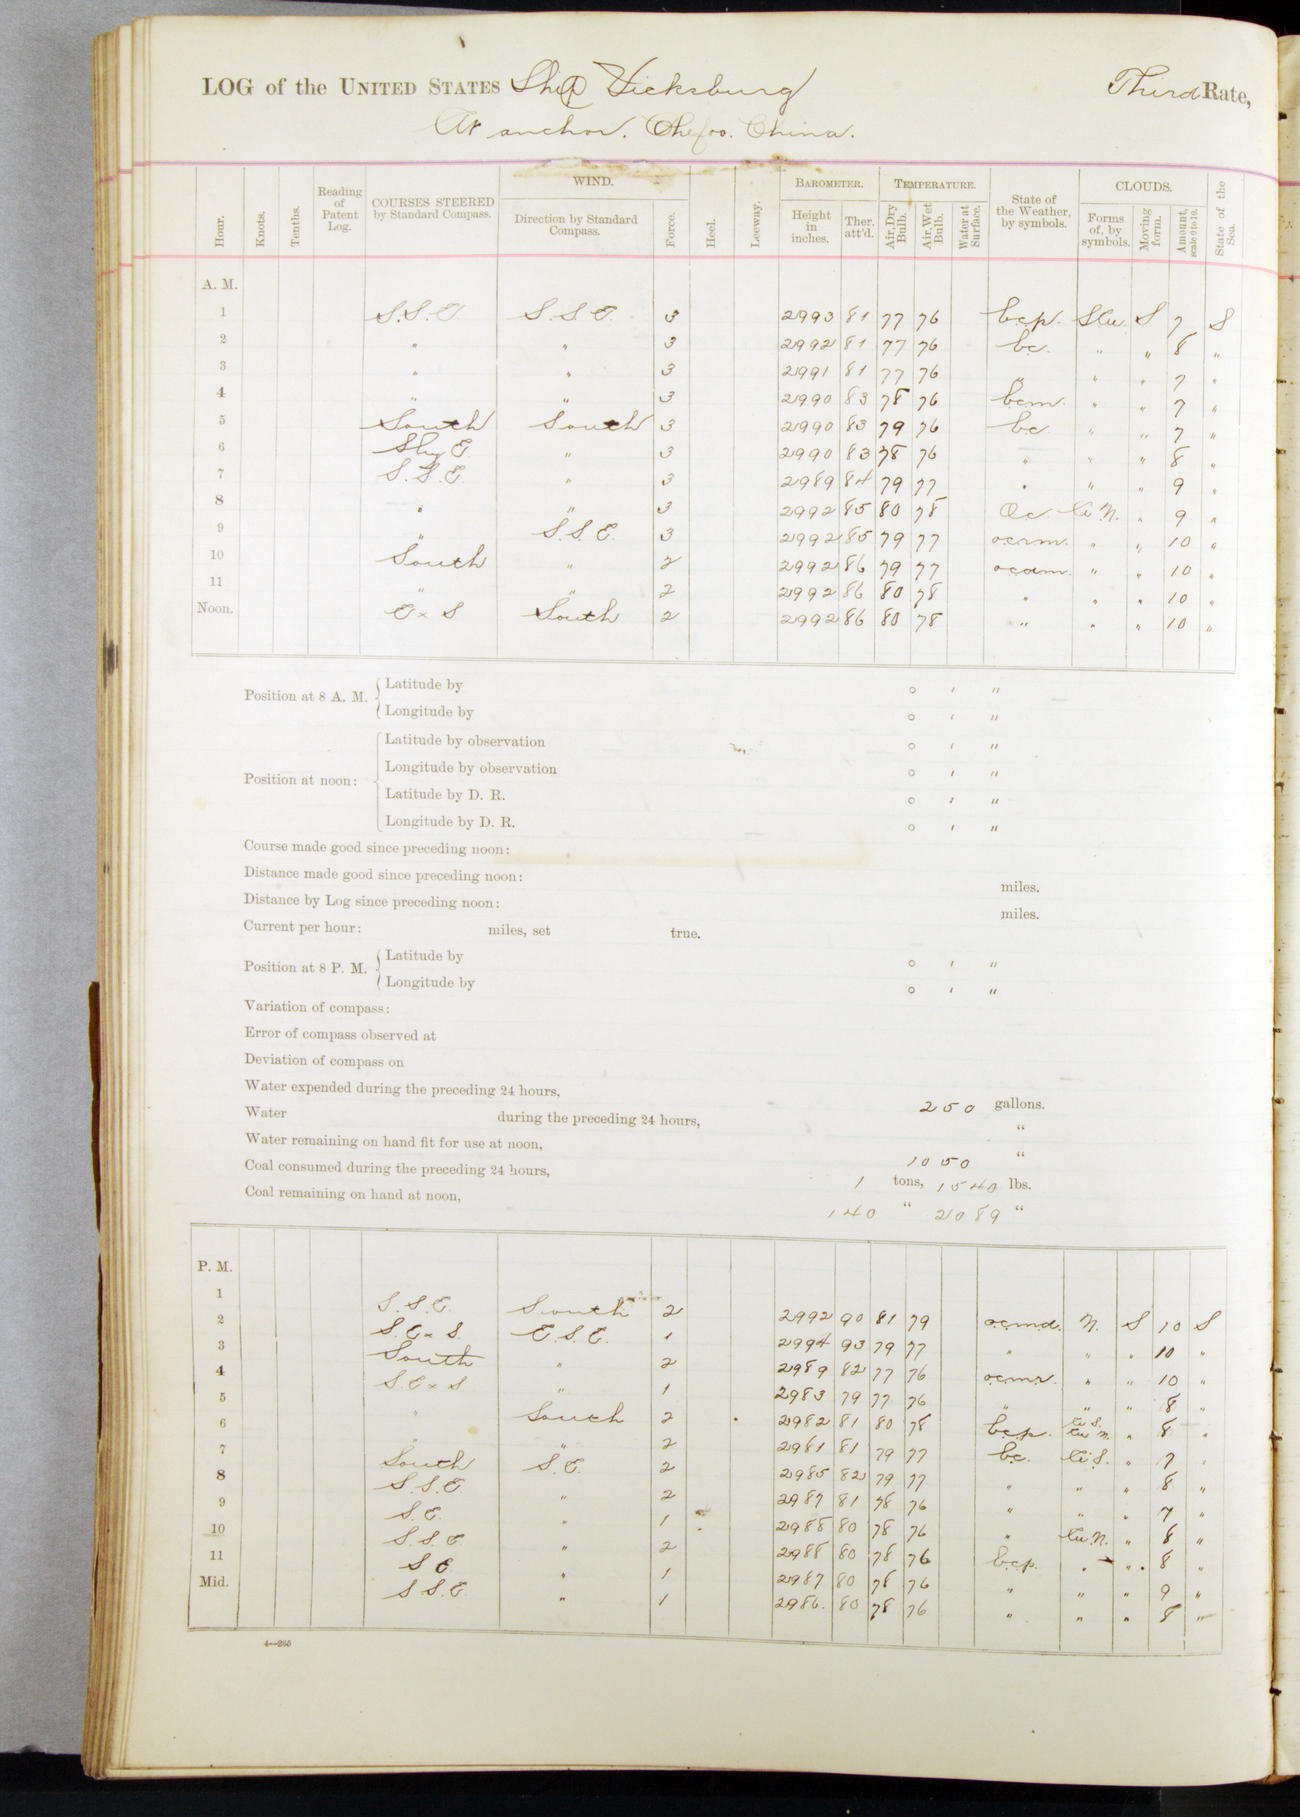 LOG of the UNITED STATES Ship Vicksburg Third Rate,
At anchor. Chefoo. China.
Hour. Knots. Tenths. Reading of Patent Log. COURSES STEERED by Standard Compass. WIND. Direction by Standard Compass. Force. Heel. Leeway. BAROMETER. Height in inches. Ther. att'd. TEMPERATURE. Air, Dry Bulb. Air, Wet Bulb. Water at Surface. State of the Weather, by symbols. CLOUDS. Forms of, by symbols. Moving form. Amount, scale 0 to 10. State of the Sea.
A. M.
1 S.S.E. S.S.E. 3 2993 81 77 76 bcp. SCu. S 7 S
2 " " 3 2992 81 77 76 bc. " " 8 "
3 " " 3 2991 81 77 76 " " " 7 "
4 " " 3 2990 83 78 76 bcm. " " 7 "
5 South South 3 2990 83 79 76 bc " " 7 "
6 SbyE. " 3 2990 83 78 76 " " " 8 "
7 S.S.E. " 3 2989 84 79 77 " " " 9 "
8 " " 3 2992 85 80 78 Oc N. " 9 "
9 " S.S.E. 3 2992 85 79 77 ocrm. " " 10 "
10 South " 2 2992 86 79 77 ocdm. " " 10 "
11 " " 2 2992 86 80 78 " " " 10 "
Noon. E x S South 2 2992 86 80 78 " " " 10 "
Position at 8 A. M. Latitude by ° ' "
Longitude by ° ' "
Position at noon: Latitude by observation ° ' "
Longitude by observation ° ' "
Latitude by D. R. ° ' "
Longitude by D. R. ° ' "
Course made good since preceding noon:
Distance made good since preceding noon: miles.
Distance by Log since preceding noon: miles.
Current per hour: miles, set true.
Position at 8 P. M. Latitude by ° ' "
Longitude by ° ' "
Variation of compass:
Error of compass observed at
Deviation of compass on
Water expended during the preceding 24 hours, 250 gallons.
Water during the preceding 24 hours, "
Water remaining on hand fit for use at noon, 1050 "
Coal consumed during the preceding 24 hours, 1 tons, 1540 lbs.
Coal remaining on hand at noon, 140 " 2089 "
P. M.
1 S.S.E. South 2 2992 90 81 79 ocmd. N. S 10 S
2 S.E x S. E.S.E. 1 2994 93 79 77 " " " 10 "
3 South " 2 2989 82 77 76 ocmr. " " 10 "
4 S.E x S. " 1 2983 79 77 76 " " " 8 "
5 " South 2 2982 81 80 78 bcp. " 8 "
6 " " 2 2981 81 79 77 bc. Ci S. " 7 "
7 South S.E. 2 2985 82 79 77 " " " 8 "
8 S.S.E. " 2 2987 81 78 76 " " " 7 "
9 S.E. " 1 2988 80 78 76 " Cu N. " 8 "
10 S.S.E. " 2 2988 80 78 76 bcp. " " 8 "
11 SE " 1 2987 80 78 76 " " " 9 "
Mid. S S.E " 1 2986. 80 78 76 " " " 8 "
4—265